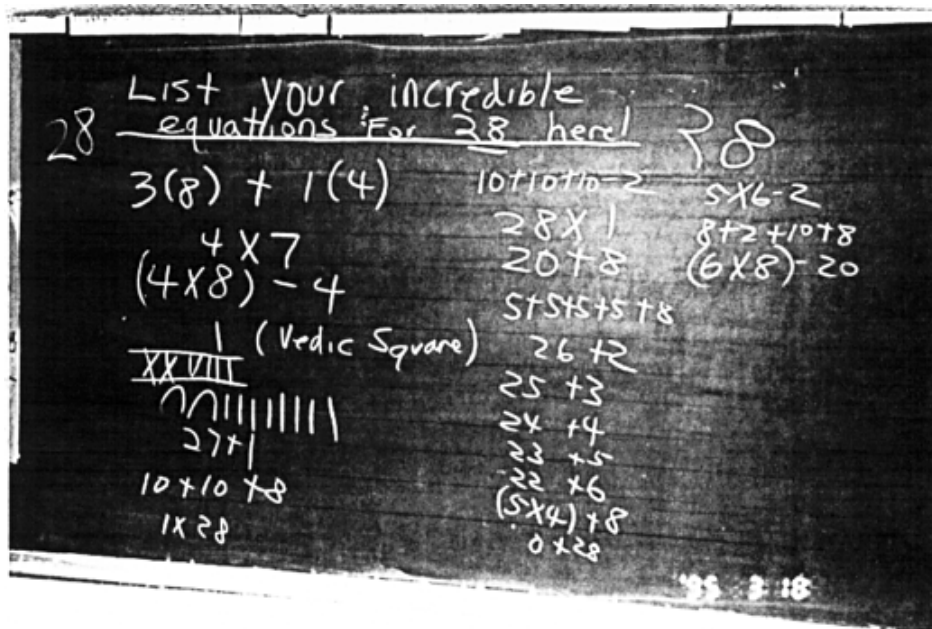 List your incredible
equations For 28 here!
28
28
3(8) + 1(4)
4 X 7
(4X8) - 4
1 (Vedic Square)
XXVIII
∩∩||||||||
27+1
10+10+8
1X28
10+10+10-2
28X1
20+8
5+5+5+5+8
26+2
25+3
24+4
23+5
22+6
(5X4)+8
0+28
5X6-2
8+2+10+8
(6X8)-20
'95 3 18